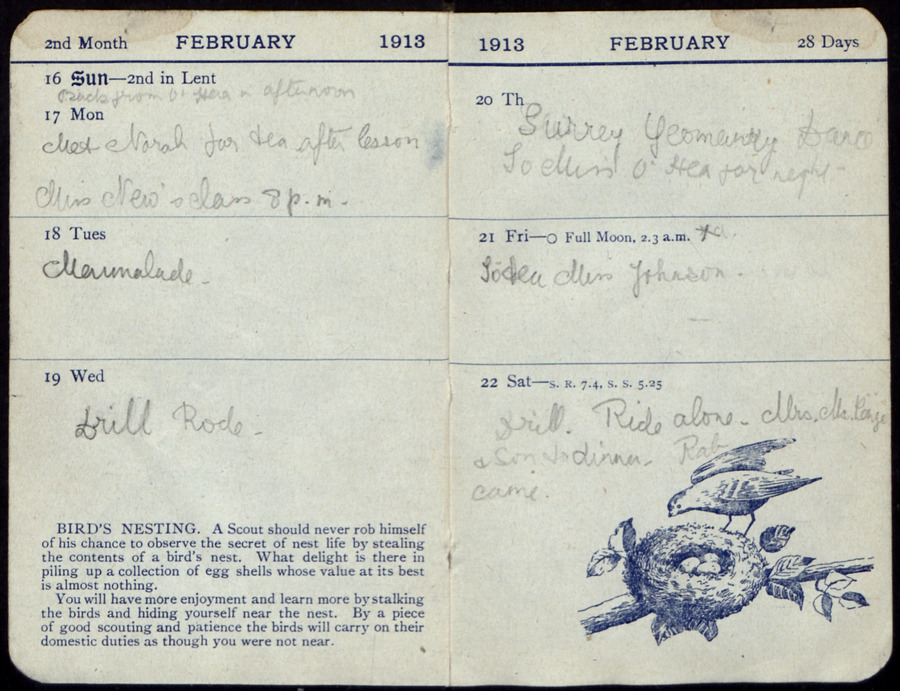 2nd Month FEBRUARY 1913
16 Sun—2nd in Lent
Back from O' Hea in afternoon
17 Mon
Met Norah for tea after lesson
Miss New's class 8 p.m.
18 Tues
Marmalade.
19 Wed
Drill Rode.
BIRD'S NESTING. A Scout should never rob himself
of his chance to observe the secret of nest life by stealing
the contents of a bird's nest. What delight is there in
piling up a collection of egg shells whose value at its best
is almost nothing.
You will have more enjoyment and learn more by stalking
the birds and hiding yourself near the nest. By a piece
of good scouting and patience the birds will carry on their
domestic duties as though you were not near.
1913 FEBRUARY 28 Days
20 Th
Surrey Yeomanry Dance
To Miss O' Hea for night-
21 Fri—○ Full Moon, 2.3 a.m.
To tea Miss Johnson.
22 Sat—S. R. 7.4, S. S. 5.25
Drill. Ride alone. Mrs.
& Son to dinner.
came.